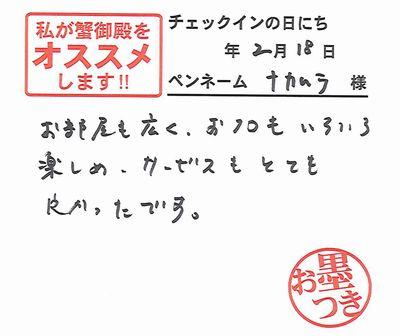 私が蟹御殿を
オススメ
します!!
チェックインの日にち
年 2月 18日
ペンネーム ナカムラ 様
お部屋も広く、おフロも いろいろ
楽しめ、サービスも とても
良かったです。
お墨
つき